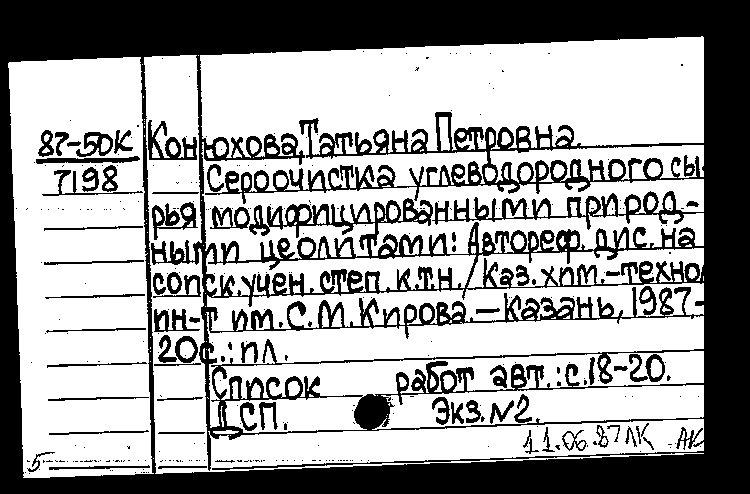 87-50К Конюхова, Татьяна Петровна.
7198 Сероочистка углеводородного сы-
рья модифицированными природ-
ными цеолитами: Автореф. дис. на
соиск. учен. степ. к.т.н. / Каз. хим.-техно
ин-т им. С. М. Кирова. — Казань, 1987.-
20с.: ил.
Список работ авт.: с. 18-20.
ДСП. Экз. №2.
11.06.87 ЛК АК
5